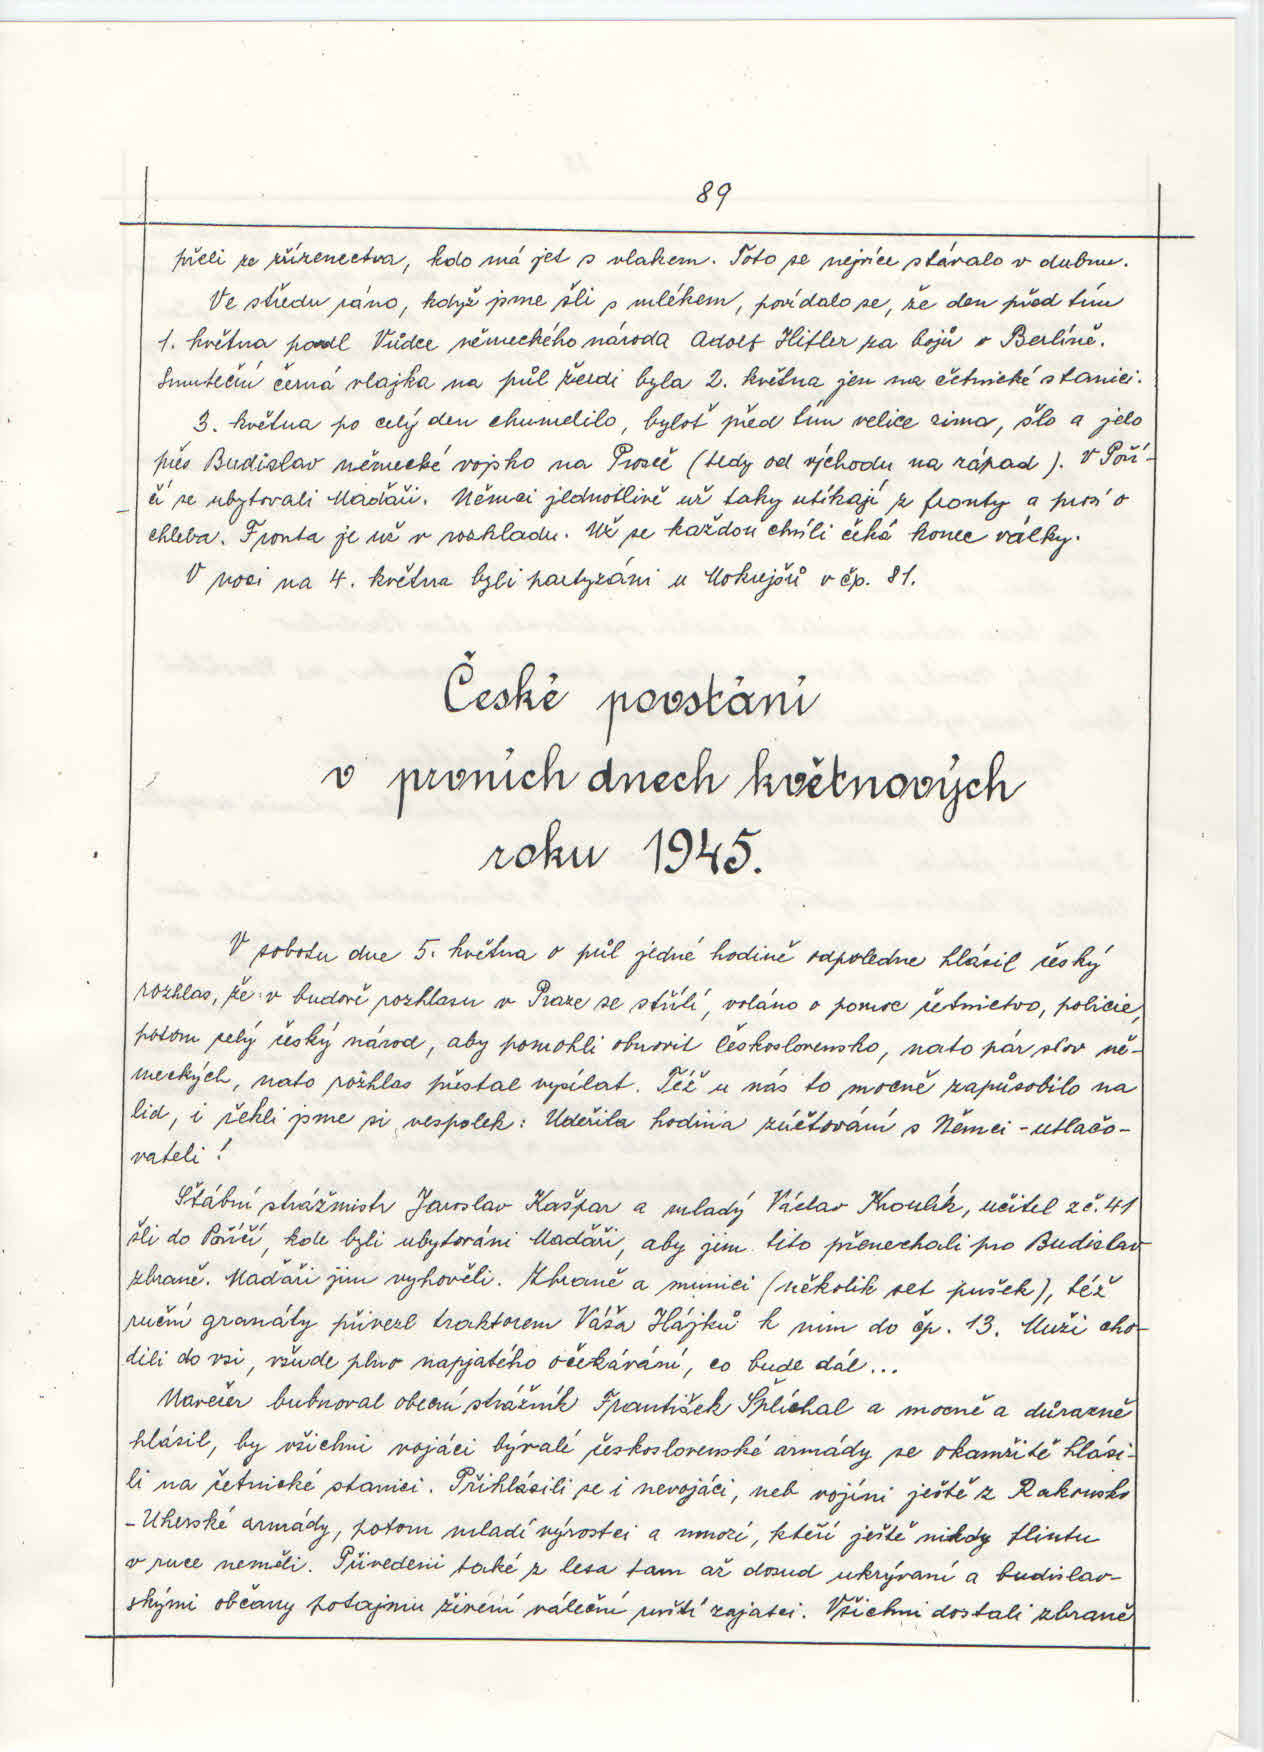 89
přeli ze zřízenectva, kdo má jet s vlakem. Toto se nejvíce stávalo v dubnu.
Ve středu ráno, když jsme šli s mlékem, povídalo se, že den před tím
1. května padl Vůdce německého národa Adolf Hitler za bojů o Berlíně.
Smuteční černá vlajka na půl žerdi byla 2. května jen na četnické stanici.
3. května po celý den chumelilo, byloť před tím velice zima, šlo a jelo
přes Budislav německé vojsko na Proseč (tedy od východu na západ). V Poří-
čí se ubytovali Maďaři. Němci jednotlivě už taky utíkají z fronty a prosí o
chleba. Fronta je už v rozkladu. Už se každou chvíli čeká konec války.
V noci na 4. května byli partyzáni u Mokrejšů v čp. 81.
České povstání
v prvních dnech květnových
roku 1945.
V sobotu dne 5. května o půl jedné hodině odpoledne hlásil český
rozhlas, že v budově rozhlasu v Praze se střílí, voláno o pomoc četnictvo, policie,
potom celý český národ, aby pomohli obnovit Československo, nato pár slov ně-
meckých, nato rozhlas přestal vysílat. Též u nás to mocně zapůsobilo na
lid, i řekli jsme si vespolek: Udeřila hodina zúčtování s Němci - utlačo-
vateli!
Štábní strážmistr Jaroslav Kašpar a mladý Václav Kroulík, učitel z č. 41
šli do Poříčí, kde byli ubytováni Maďaři, aby jim tito přenechali pro Budislav
zbraně. Maďaři jim vyhověli. Zbraně a munici (několik set pušek), též
ruční granáty přivezl traktorem Váša Hájků k nim do čp. 13. Muži cho-
dili do vsi, všude plno napjatého očekávání, co bude dál...
Navečer bubnoval obecní strážník František Šplíchal a mocně a důrazně
hlásil, by všichni vojáci bývalé československé armády se okamžitě hlási-
li na četnické stanici. Přihlásili se i nevojáci, neb vojíni ještě z Rakousko
-Uherské armády, potom mladí výrostci a mnozí, kteří ještě nikdy flintu
v ruce neměli. Přivedeni také z lesa tam až dosud ukrývaní a budislav-
skými občany potajmu živení váleční ruští zajatci. Všichni dostali zbraně